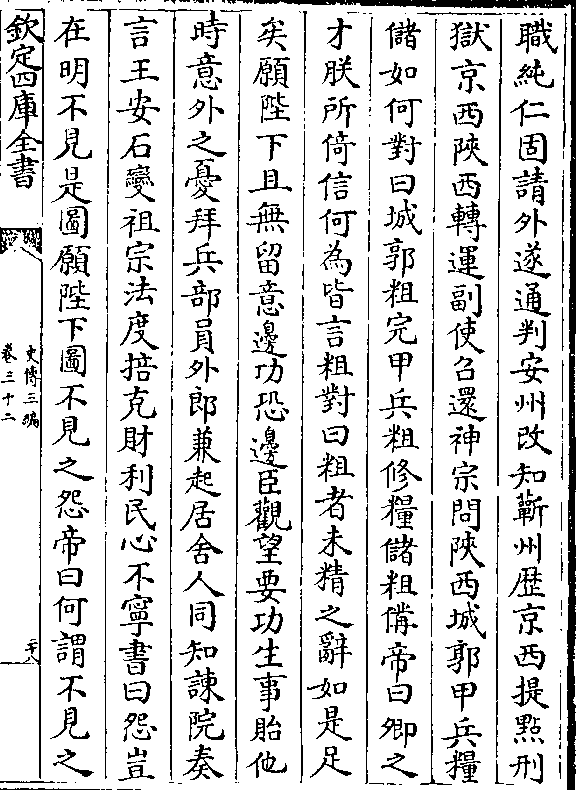 職純仁固請外遂通判安州改知蘄州歴京西提㸃刑
獄京西陜西轉運副使召還神宗問陜西城郭甲兵糧
儲如何對曰城郭粗完甲兵粗修糧儲粗備帝曰卿之
才朕所倚信何為皆言粗對曰粗者未精之辭如是足
矣願陛下且無留意邊功恐邊臣觀望要功生事貽他
時意外之憂拜兵部員外郎兼起居舍人同知諫院奏
言王安石變祖宗法度掊克財利民心不寧書曰怨豈
在明不見是圖願陛下圖不見之怨帝曰何謂不見之
欽定四庫全書
史傳三編
卷三十二
二十八